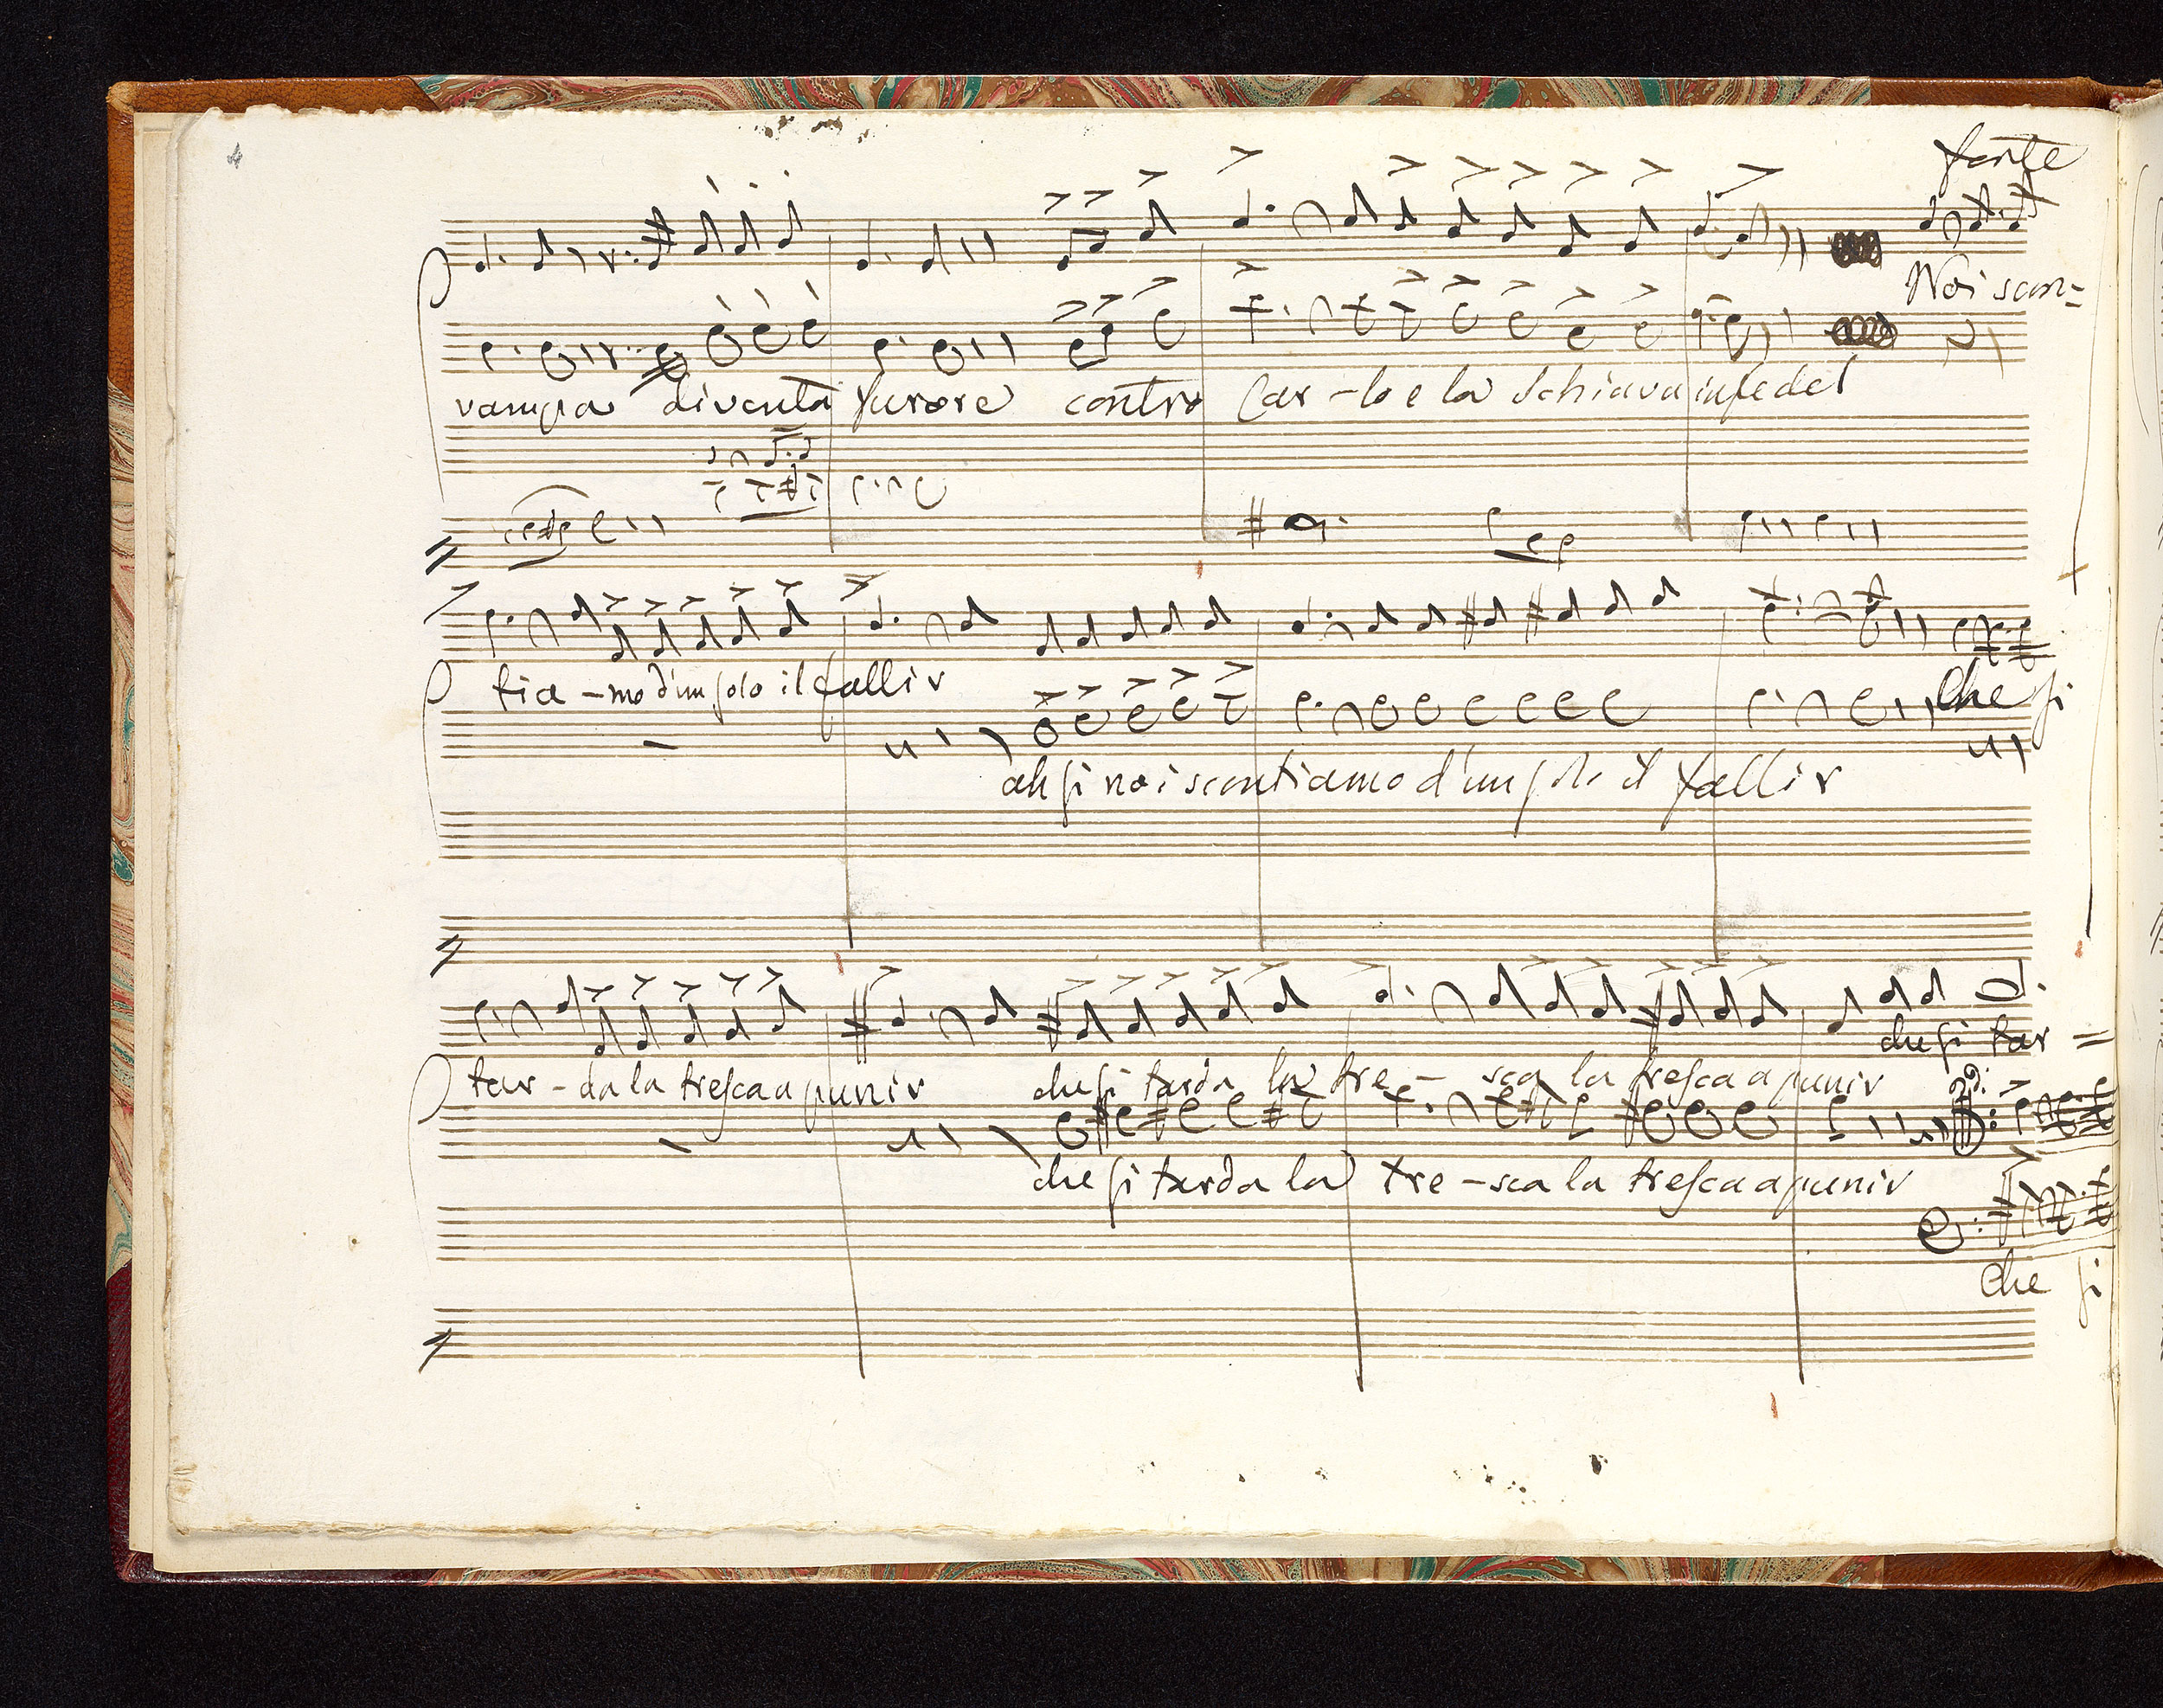 4
forte
Noi scon=
vampa diventa furore contro Car-lo e la schiava infedel
tia-mo d'un solo il fallir
Che si
ah si noi scontiamo d'un solo il fallir
che si tar=
tar-da la tresca a punir che si tarda la tre-sca la tresca a punir
che si tarda la tre-sca la tresca a punir
Che si